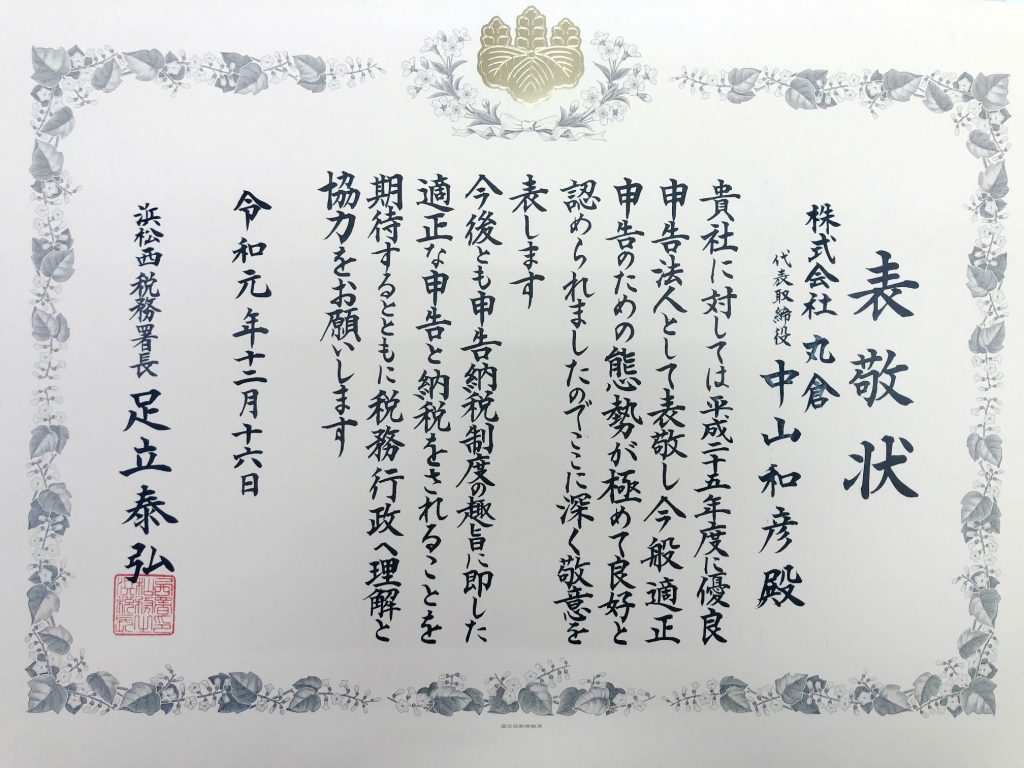 表敬状
株式会社 丸倉
代表取締役 中山和彦殿
貴社に対しては平成二十五年度に優良
申告法人として表敬し今般適正
申告のための態勢が極めて良好と
認められましたのでここに深く敬意を
表します
今後とも申告納税制度の趣旨に即した
適正な申告と納税をされることを
期待するとともに税務行政へ理解と
協力をお願いします
令和元年十二月十六日
浜松西税務署長 足立泰弘